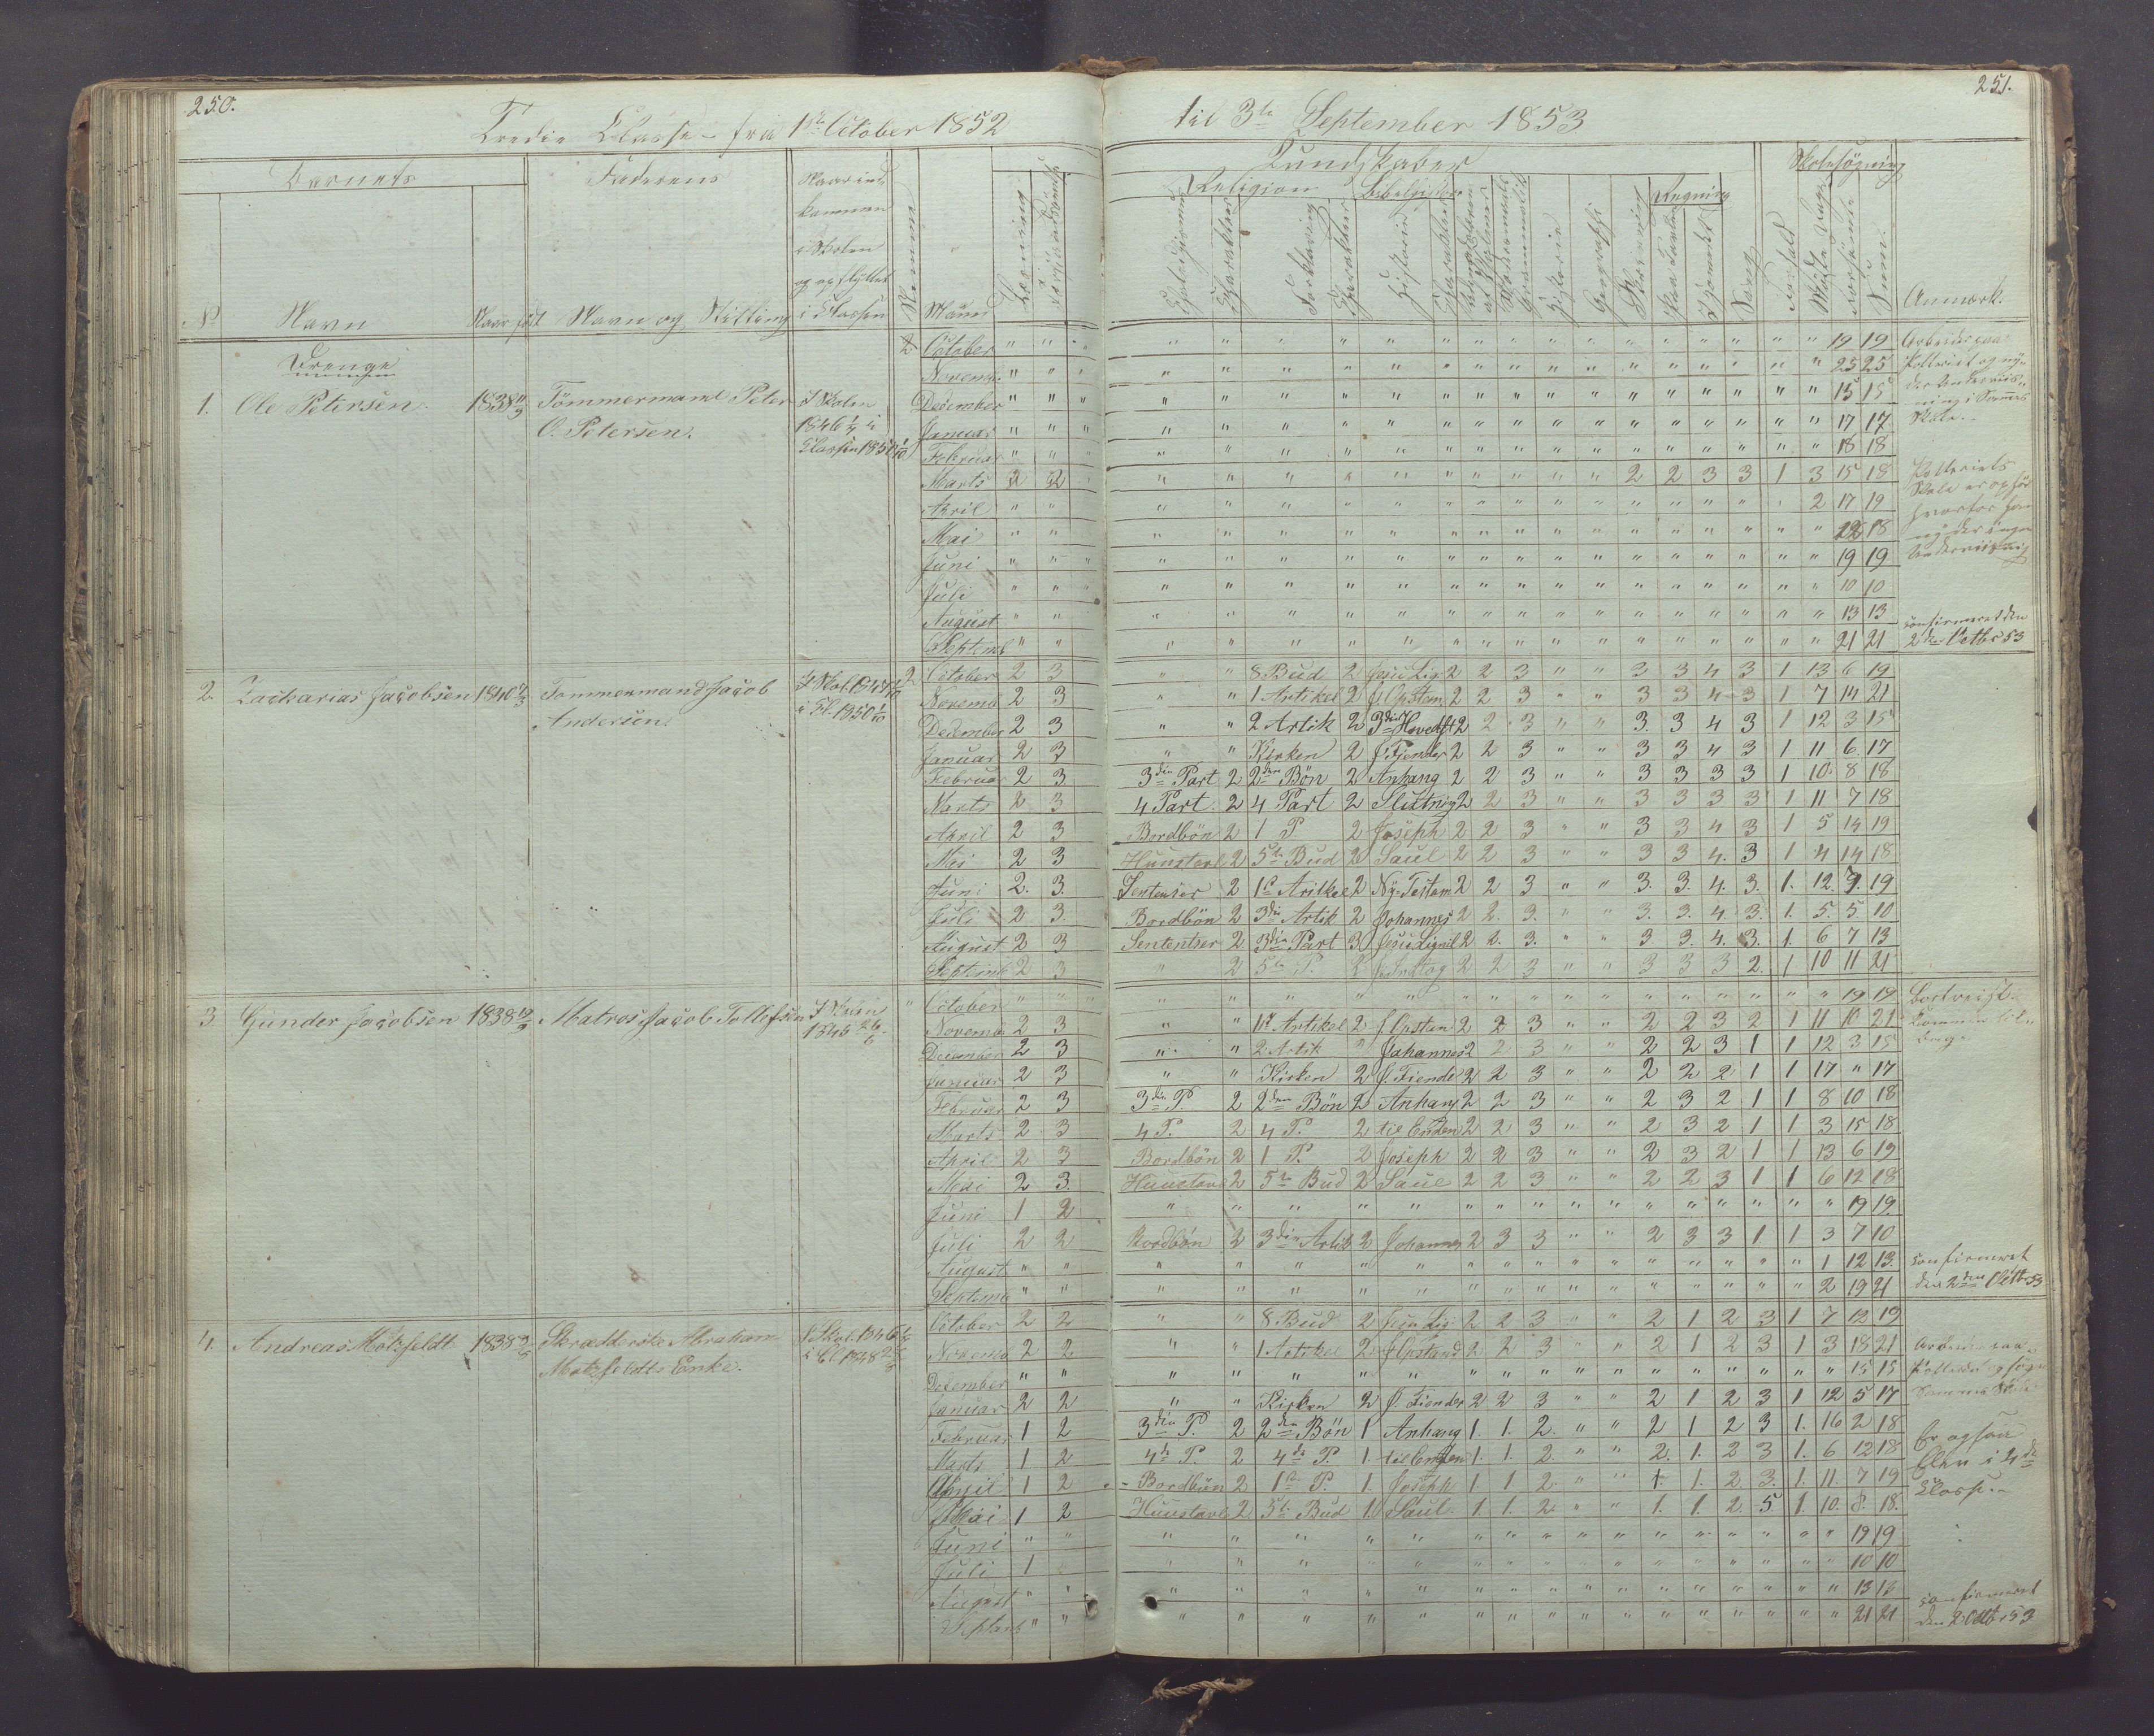 250.
Tredie Classe - fra 1ste October 1852
til 3te September 1853
251.
Barnets
Faderens
Kundskaber
Skolesøgning
Religion
Regning
No
Navn
Naar født
Navn og Stilling
i Classen
Nummer
Maaned
Forklaring
Historie
Sang
Sum.
Anmærk.
Drenge
1. Ole Petersen. 1838 Tømmermand Peter O. Petersen. I Skolen 1846 i Classen 1850 2
October " " " 19 19
Novemb. " " " 25 25
December " " " 15 15
Januar " " " 17 17
Februar " " " 18 18
Marts 2 2 " 2 2 3 3 1 3 15 18
April " " " 2 17 19
Mai " " " 18
Juni " " " 19 19
Juli " " " 10 10
August " " " 13 13
Septemb " " " 21 21
confirmeret den 2den Octbr 53
2. Zacharias Jacobsen 1840 Tømmermand Jacob Andersen. 2
October 2 3 " " 8 Bud 2 Jesu Lig 2 2 3 " " 3 3 4 3 1 13 6 19
Novemb 2 3 " " 1 Artikel 2 J. Opstan 2 2 3 " " 3 3 4 3 1 7 14 21
December 2 3 " " 2 Artik 2 3die Hovedst 2 2 3 " " 3 3 4 3 1 12 3 15
Januar 2 3 " " Kirken 2 J. Fiender 2 2 3 " " 3 3 4 3 1 11 6 17
Februar 2 3 3die Part 2 2den Bön 2 Anhang 2 2 3 " " 3 3 3 3 1 10 8 18
Marts 2 3 4 Part 2 4 Part 2 Slutning 2 2 3 " " 3 3 3 3 1 11 7 18
April 2 3 Bordbön 2 1 P 2 Joseph 2 2 3 " " 3 3 4 3 1 5 14 19
Mai 2 3 Huustavl 2 5te Bud 2 Saul 2 2 3 " " 3 3 4. 3 1 4 14 18
Juni 2. 3. Sentenser 2 1ste Artikel 2 Ny-Testam 2 2 3 " " 3. 3. 4. 3. 1. 12. 9 19
Juli 2 3. Bordbön 2 3die Artik 2 Johannes 2 2. 3. " " 3. 3. 4. 3. 1. 5. 5 10
August 2 3 Sententser 2 3die Part 3 Jesu Lignil 2 2. 3. " " 3 3. 4. 3. 1. 6 7 13
Septemb 2 3 " 2 5te P. 2 2 2 3 " " 3 3 3 2. 1 10 11 21
3 Gunder Jacobsen 1838 Matros Jacob Tollefsen I Skolen 1845
October " " " 19 19
Novemb 2 3 " " 1st Artikel 2 J. Opstan 2 2 3 " " 2 2 3 2 1 11 10 21
December 2 3 " " 2 Artik " Johannes 2 2 3 " " 2 2 3 1 1 12 3 15
Januar 2 3 " " Kirken 2 J. Fiende 2 2 3 " " 2 2 2 1 1 17 " 17
Februar 2 3 3die P. 2 2den Bön 2 Anhang 2 2 3 " " 2 3 2 1 1 8 10 18
Marts 2 3 4 P. 2 4 P. 2 til Enden 2 2 3 " " 2 3 2 1 1 3 15 18
April 2 3 Bordbön 2 1 P. 2 Joseph 2 2 3 " " 2 3 2 1 1 13 6 19
Mai 2 3. Huustavl 2 5te Bud 2 Saul 2 2 3 " " 2 2 3 1 1 6 12 18
Juni 1 2 " " 19 19
Juli 2 2 Bordbön 2 3die Artik 2 Johannes 2 3 3 " " 2 3 3 1 1 3 7 10
August " " " 1 12 13.
Septemb " " " 2 19 21
confirmeret den 2den Octbr 53
4. Andreas Motzfeldt 1838 Abraham Motzfeldts Enke.
October 2 2 " " 8 Bud 2 Jesu Lig 2 2 3 " " 2 1 2 3 1 7 12 19
Novemb 2 2 " " 1 Artikel 2 J. Opstand 2 2 3 " " 2 1 2 3 1 3 18 21
December " " " 15 15
Januar 2 2 " " Kirken 2 J. Fiender 2 2 3 " " 2 1 2 3 1 12 5 17
Februar 1 2 3die P. 2 2den Bön 1 Anhang 1. 1. 2. " " 2 1 2 3 1. 16 2 18
Marts 1 2 4de P. 2 4de P. 1 til Enden 1. 1. 2. " " 2. 1. 2 3 1. 6 12 18
April 1 2 Bordbön 2 1ste P. 1. Joseph 1 1 2. " " 1 1. 2. 3. 1. 11. 7 19
Mai 1 2 Huustavl 2 5te Bud 1. Saul. 1. 1. 2 " " 1. 1. 2. 5 1. 10. 8. 18.
Juni " " " 19 19
Juli 1 " 10 10
August " " " 13 13
Septemb " " " 21 21
Er ogsaa Elev i 4de Classe.
confirmeret den 2 Octbr 53